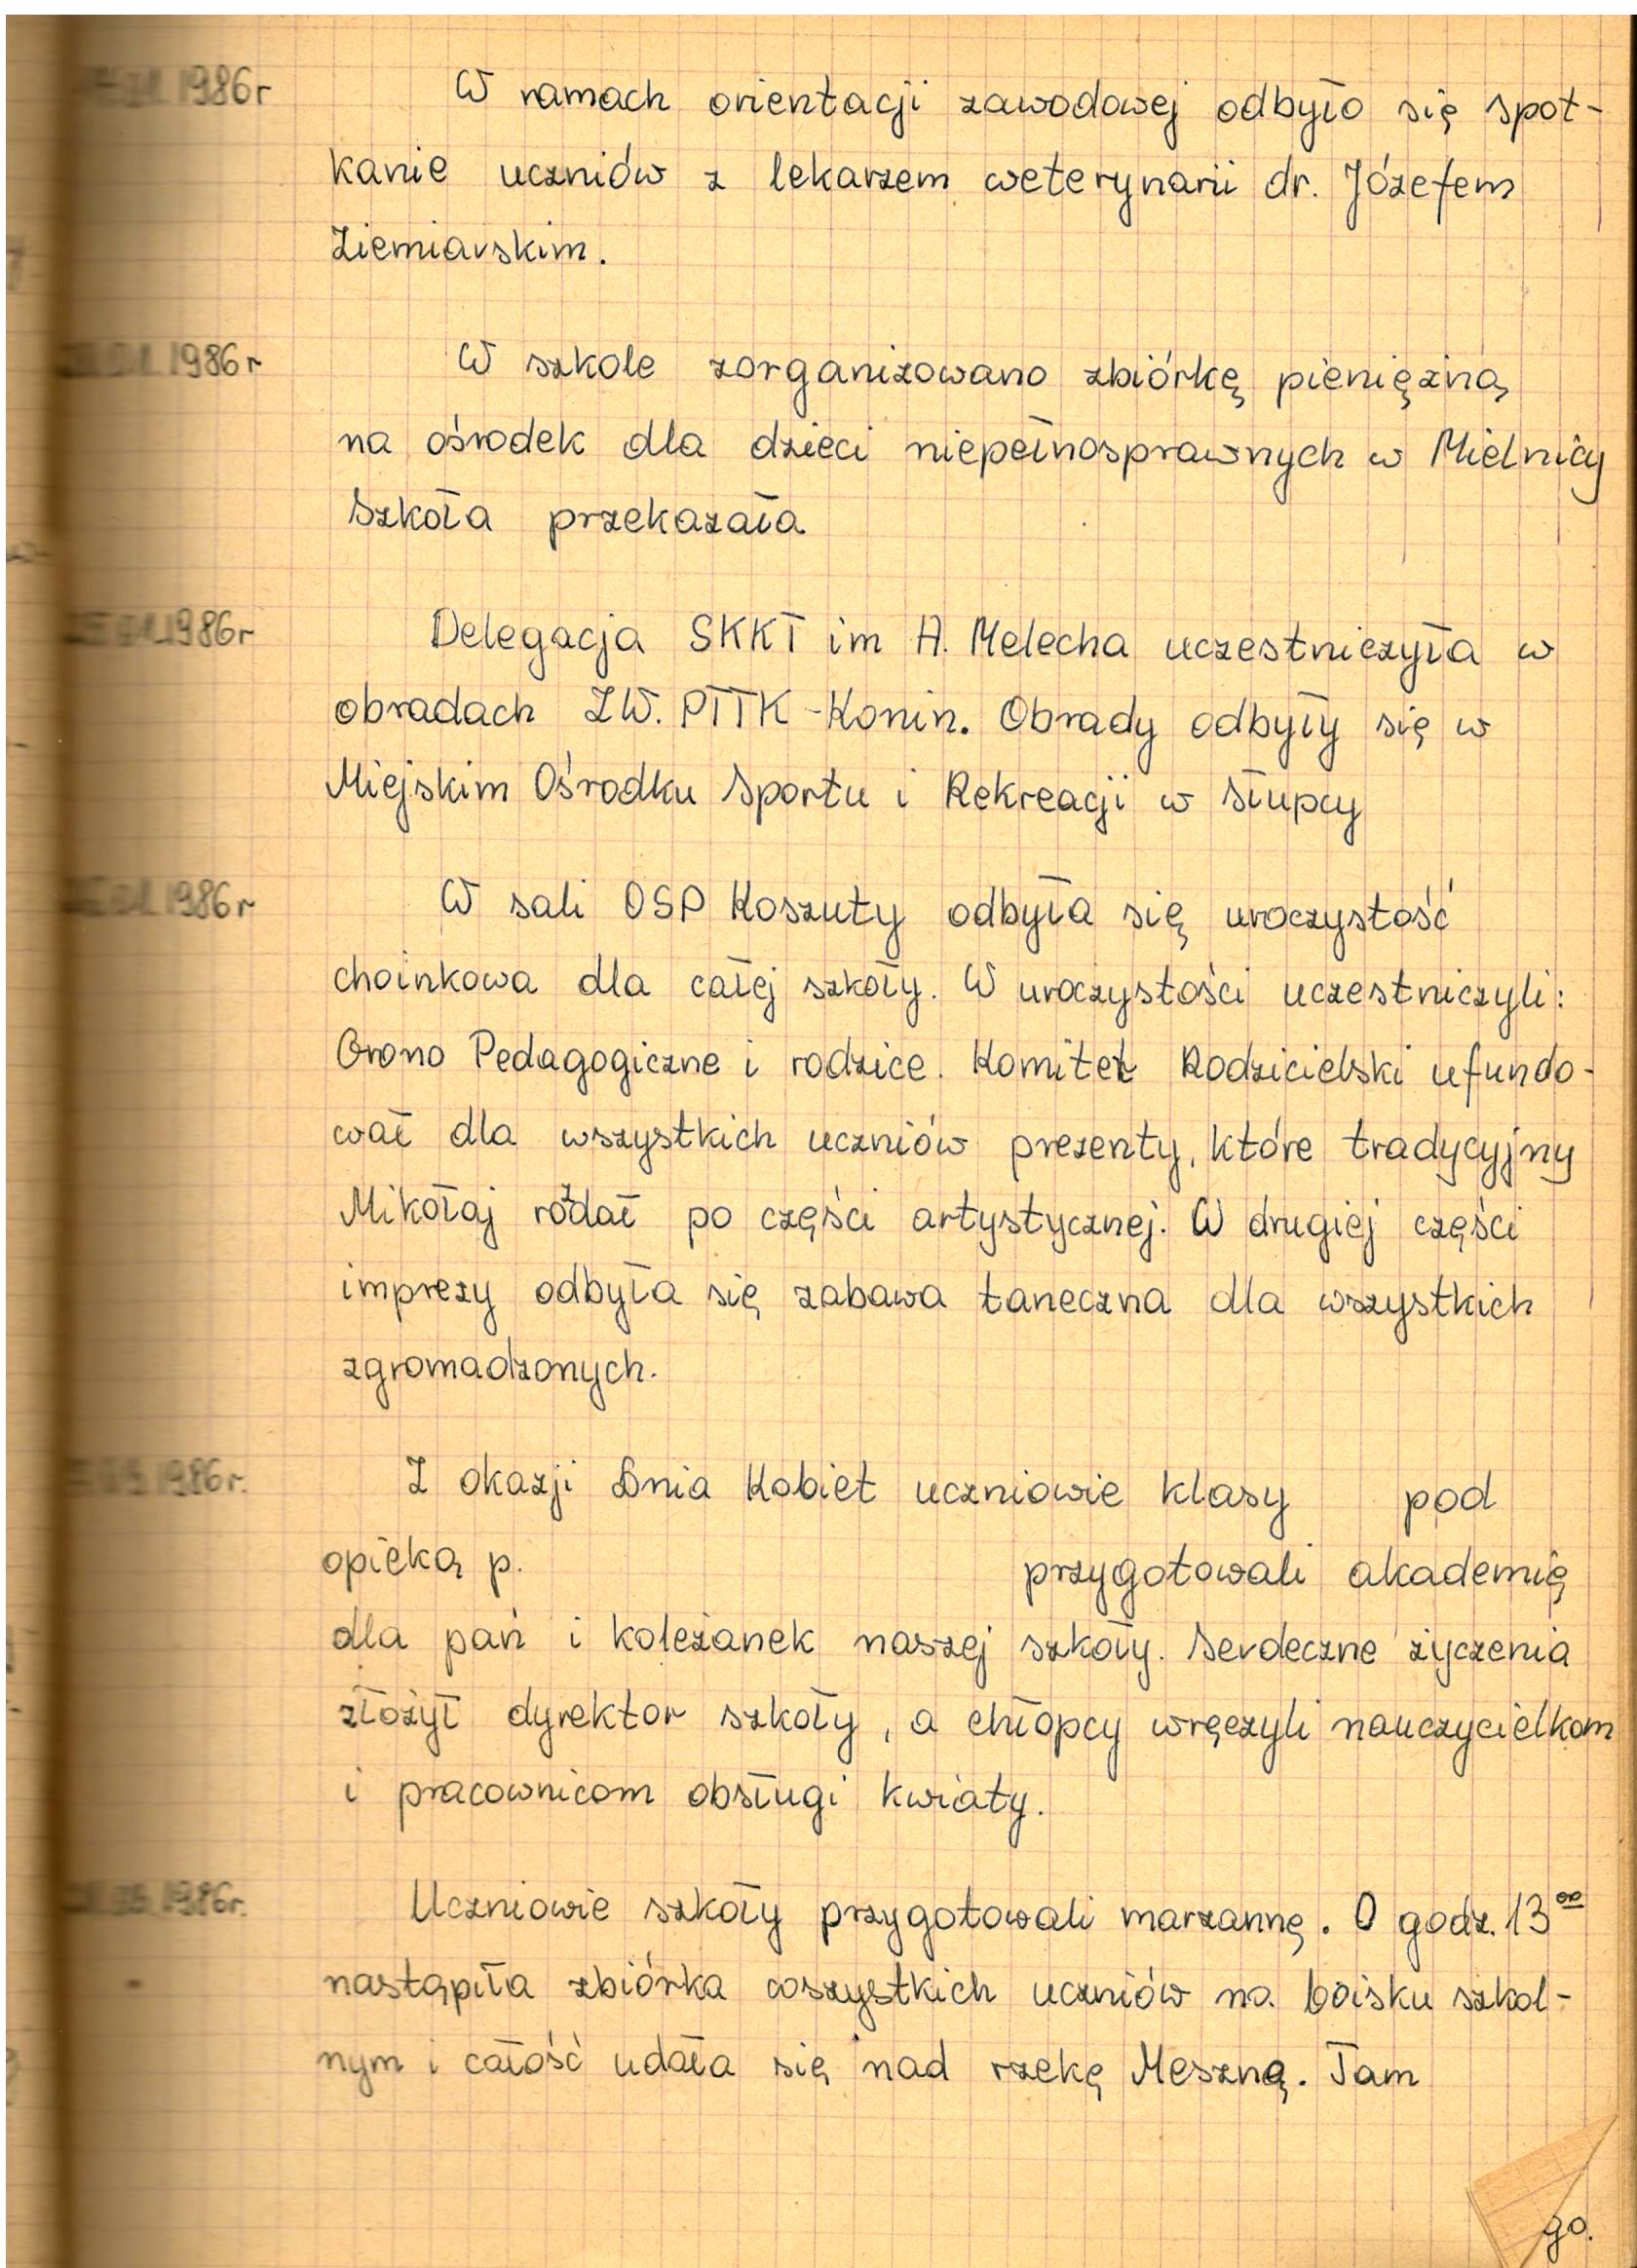 1986r W ramach orientacji zawodowej odbyło się spot-
kanie uczniów z lekarzem weterynarii dr. Józefem
Ziemiarskim.
1986r W szkole zorganizowano zbiórkę pieniężną
na ośrodek dla dzieci niepełnosprawnych w Mielnicy
Szkoła przekazała
1986r Delegacja SKKT im H. Melecha uczestniczyła w
obradach ZW. PTTK - Konin. Obrady odbyły się w
Miejskim Ośrodku Sportu i Rekreacji w Słupcy
1986r W sali OSP Koszuty odbyła się uroczystość
choinkowa dla całej szkoły. W uroczystości uczestniczyli:
Grono Pedagogiczne i rodzice. Komitet Rodzicielski ufundo-
wał dla wszystkich uczniów prezenty, które tradycyjny
Mikołaj rozdał po części artystycznej. W drugiej części
imprezy odbyła się zabawa taneczna dla wszystkich
zgromadzonych.
1986r. Z okazji Dnia Kobiet uczniowie klasy pod
opieką p. przygotowali akademię
dla pań i koleżanek naszej szkoły. Serdeczne życzenia
złożył dyrektor szkoły, a chłopcy wręczyli nauczycielkom
i pracownicom obsługi kwiaty.
1986r. Uczniowie szkoły przygotowali marzannę. O godz. 13⁰⁰
nastąpiła zbiórka wszystkich uczniów na boisku szkol-
nym i całość udała się nad rzekę Meszną. Tam
go.